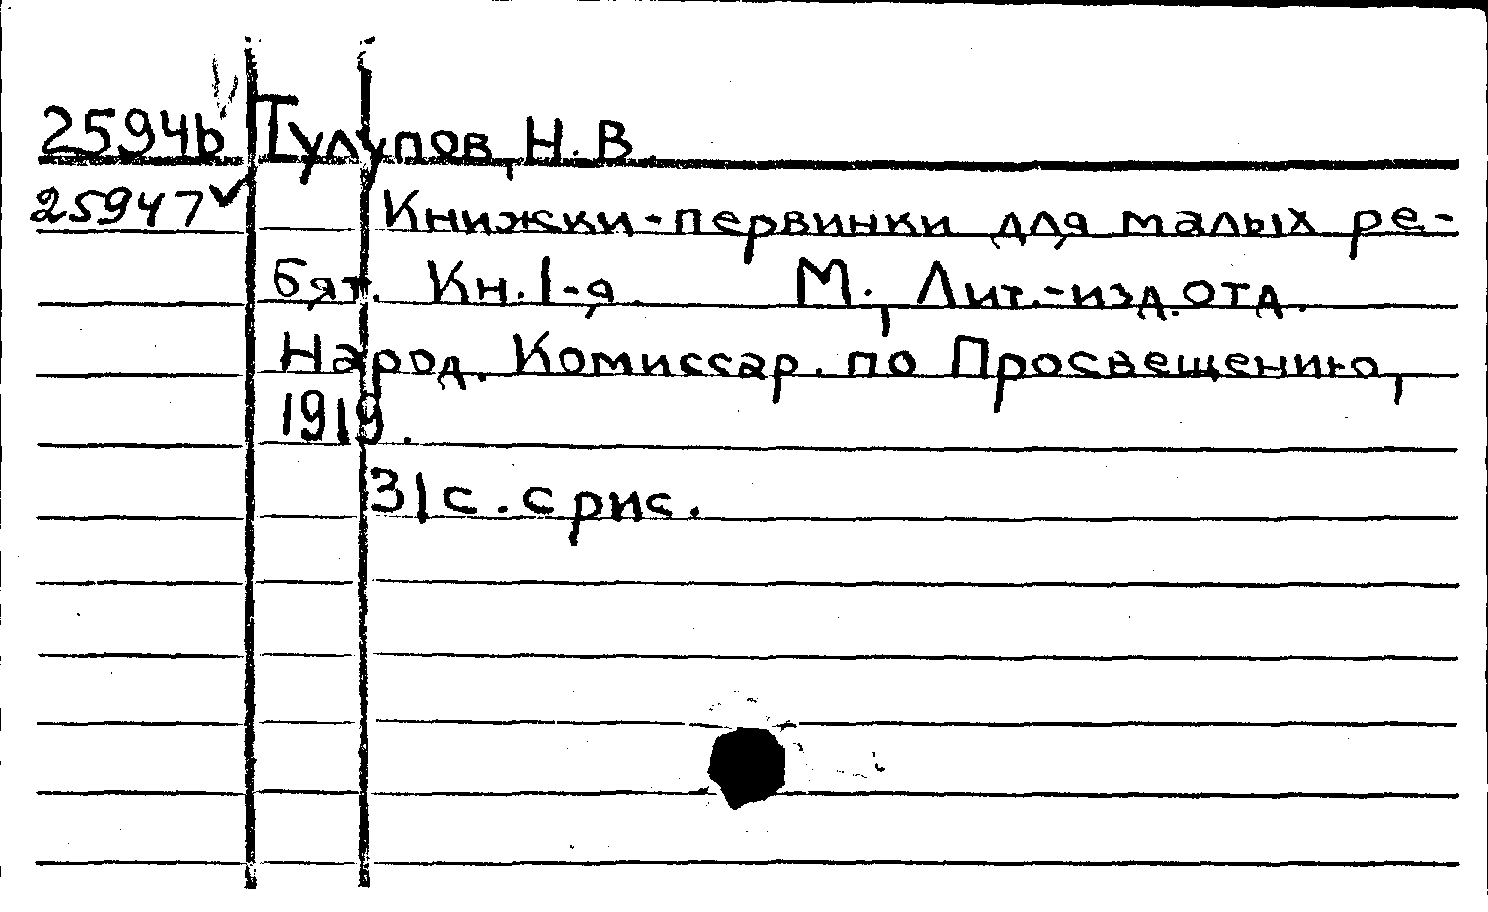 25946 Тулупов, Н.В.
25947 Книжки-первинки для малых ре-
бят. Кн. 1-я. М., Лит.-изд.отд.
Народ. Комиссар. по Просвещению,
1919.
31с. с рис.